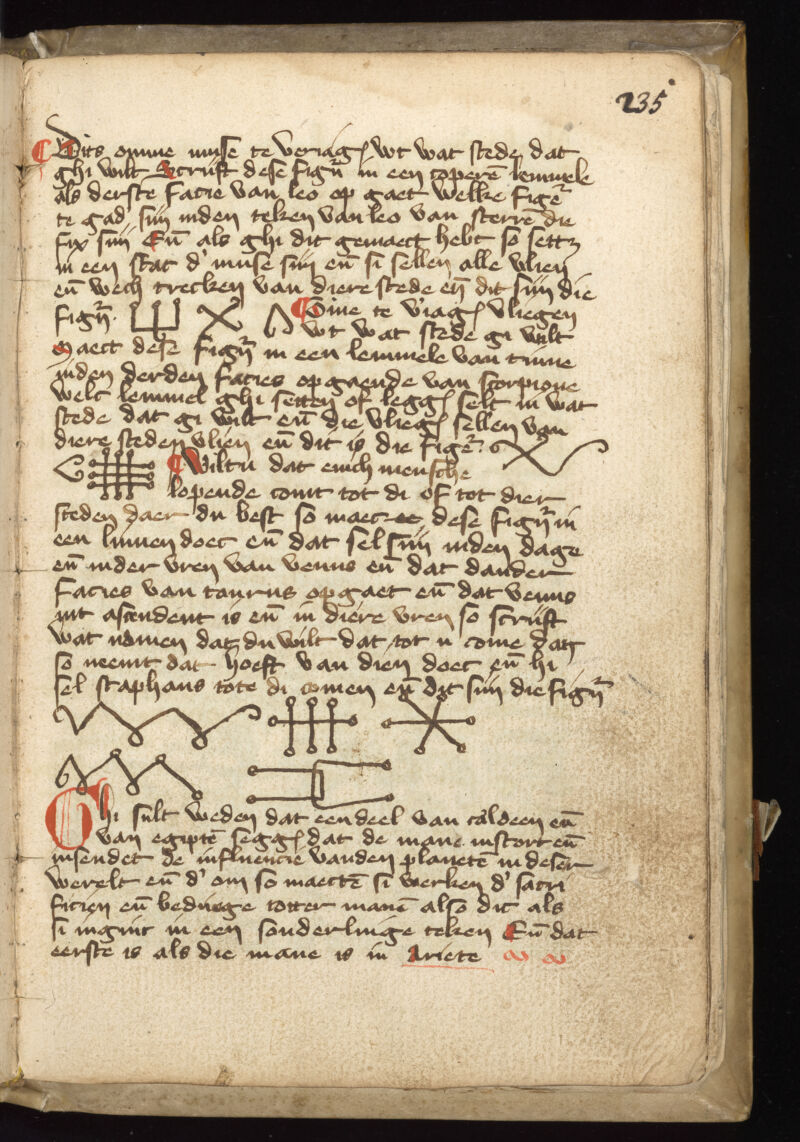 235
Dits omme muse te veriag̃ wt wat stede dat
ghi wilt Scrijft dese figur̃ in een coperē lemmele
als derste facie van leo op gaet welke figer̃
te gad' sijn inden teken van leo van sterrē die
fix sijn Eñ als ghi dit gemaect hebt so settz
in een stat d' muse sijn eñ si sellen alle vlien
eñ wech trecken van diere stede eñ dit sijn die
figur̃ · Omme te v'iag̃ vliegen
wt wat stede gi wilt
Maect dese figur̃ in een lemmele van tinne
inden derden facies opgaende van scorpione
welc lemmel ghi setten of legg̃ selt in wat
stede dat gi wilt eñ die vlieg̃ sellen van
diere steden vlien eñ dit is die figer̃ ·
Wiltu dat enich mensche
lopende comt tot di of tot dier
steden daer du best so maect dese figur̃ in
een linnen doec eñ dat sel sijn inden dage
eñ inder vren van venus eñ dat dander
facies van taurus opgaet eñ dat venus
int ascendent is eñ in diere vren so scrijft
wat namen datz du wilt dat tot u come datz
so neemt dat hoeft van dien doec eñ hi
sel staphans tote di comen eñ dit sijn die figur̃
Ghi sult weden dat een deel van caldeen eñ
van egiptē segg̃ dat de mane instort eñ
insendet de influencie vanden planetē in deser
werelt eñ d' om so maectē si werken d' sacri
ficien eñ beduege totter manē also dit als
si ingint in een sonderlinge teken Eñ dat
eerste is als die mane is in Ariete